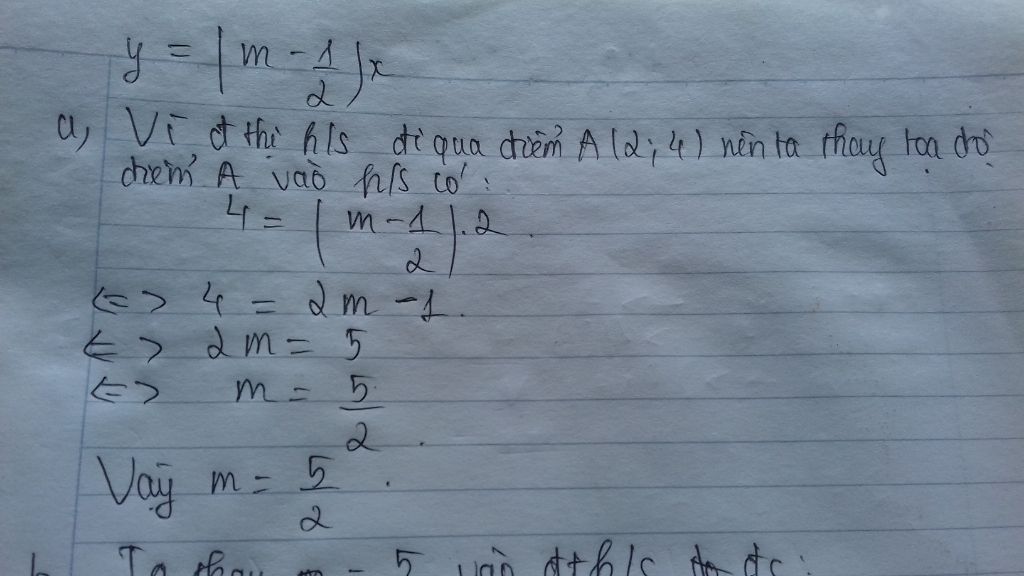 y = (m - 1/2)x
a, Vì đ thị h/s đi qua điểm A(2;4) nên ta thay toạ độ
điểm A vào h/s có:
4 = (m - 1/2).2.
<=> 4 = 2m - 1.
<=> 2m = 5
<=> m = 5/2.
Vậy m = 5/2.
Ta thay m = 5 vào đt h/s